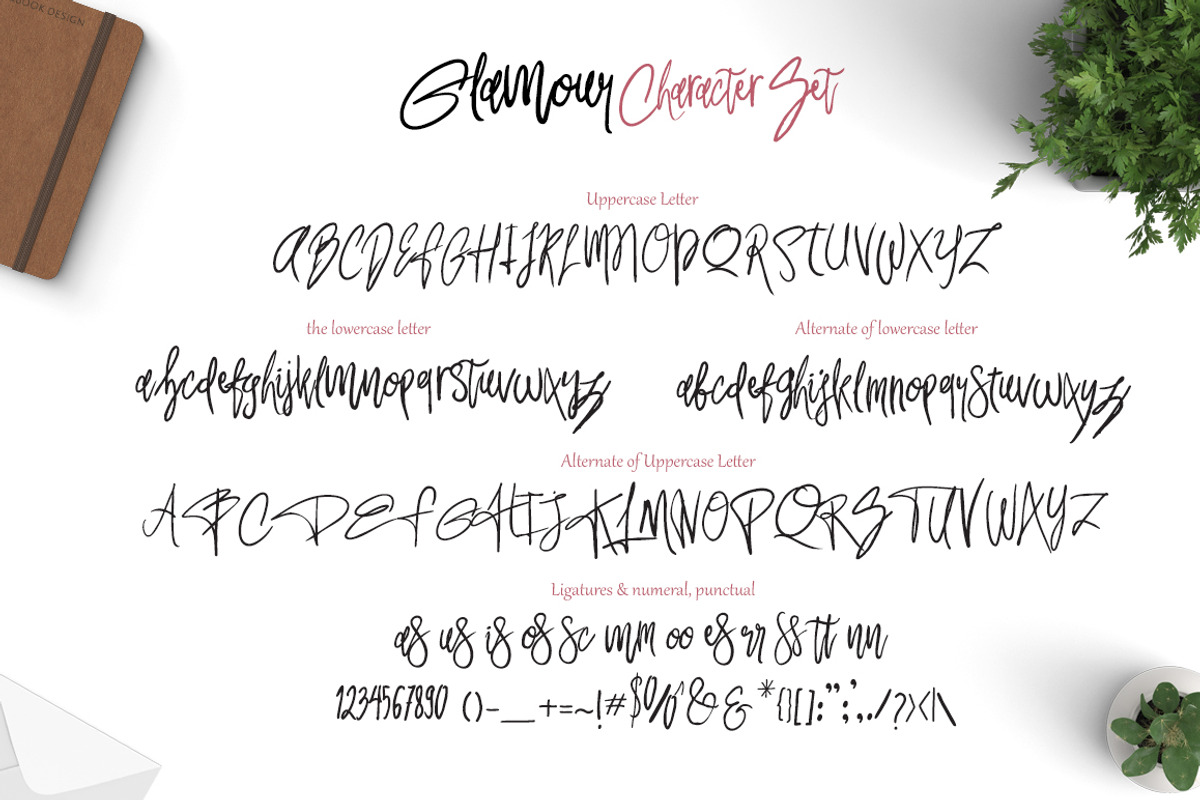 BOOK DESIGN
Glamour Character Set
Uppercase Letter
ABCDEFGHIJKLMNOPQRSTUVWXYZ
the lowercase letter
abcdefghijklmnopqrstuvwxyz
Alternate of lowercase letter
abcdefghijklmnopqrstuvwxyz
Alternate of Uppercase Letter
ABCDEFGHIJKLMNOPQRSTUVWXYZ
Ligatures & numeral, punctual
as us is os sc mm oo es rr ss tt nn
1234567890 ()-_+=~!#$0%&& *{}[]:”;’,./?><|\